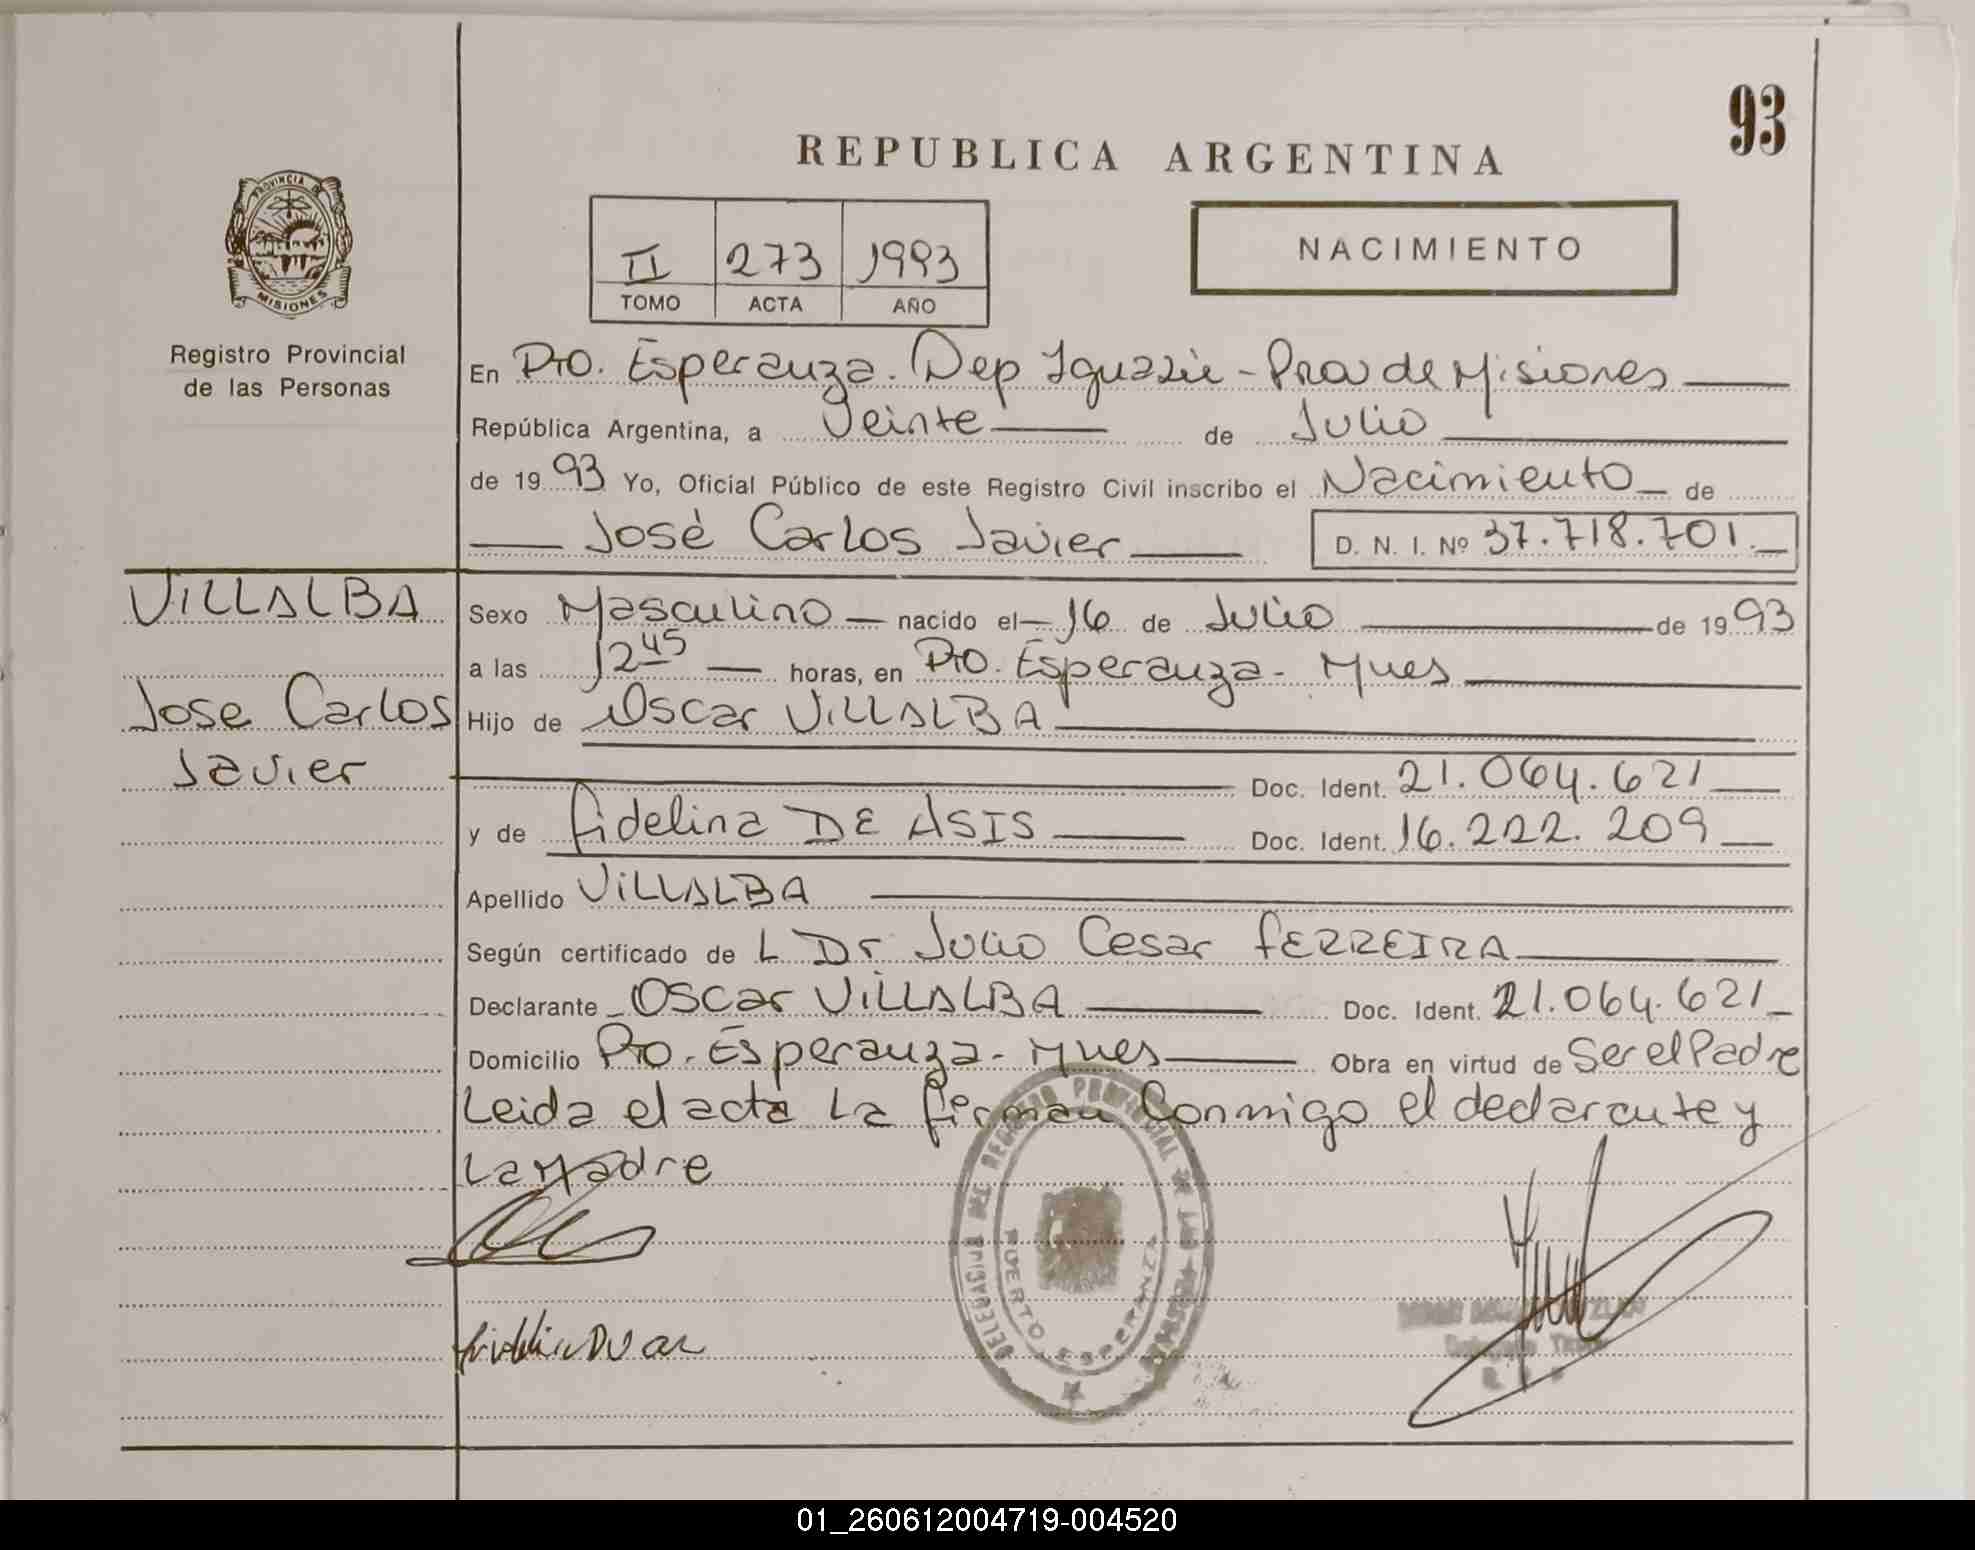 93
REPUBLICA ARGENTINA
PROVINCIA DE
MISIONES
Registro Provincial
de las Personas
II 273 1993
TOMO ACTA AÑO
NACIMIENTO
En Pto. Esperanza. Dep Iguazú - Prov de Misiones
República Argentina, a Veinte de Julio
de 1993 Yo, Oficial Público de este Registro Civil inscribo el Nacimiento de
José Carlos Javier D. N. I. Nº 37.718.701.
VILLALBA
Jose Carlos
Javier
Sexo Masculino nacido el 16 de Julio de 1993
a las 12 45 horas, en Pto. Esperanza - Mnes
Hijo de Oscar VILLALBA
Doc. Ident. 21.064.621
y de Fidelina DE ASIS Doc. Ident. 16.222.209
Apellido VILLALBA
Según certificado de L Dr Julio Cesar FERREIRA
Declarante Oscar VILLALBA Doc. Ident. 21.064.621
Domicilio Pto. Esperanza - Mnes Obra en virtud de Ser el Padre
Leida el acta La firman Conmigo el declarante y
La Madre
DEL REGISTRO PROVINCIAL DE LAS PERSONAS
PUERTO ESPERANZA
01_260612004719-004520